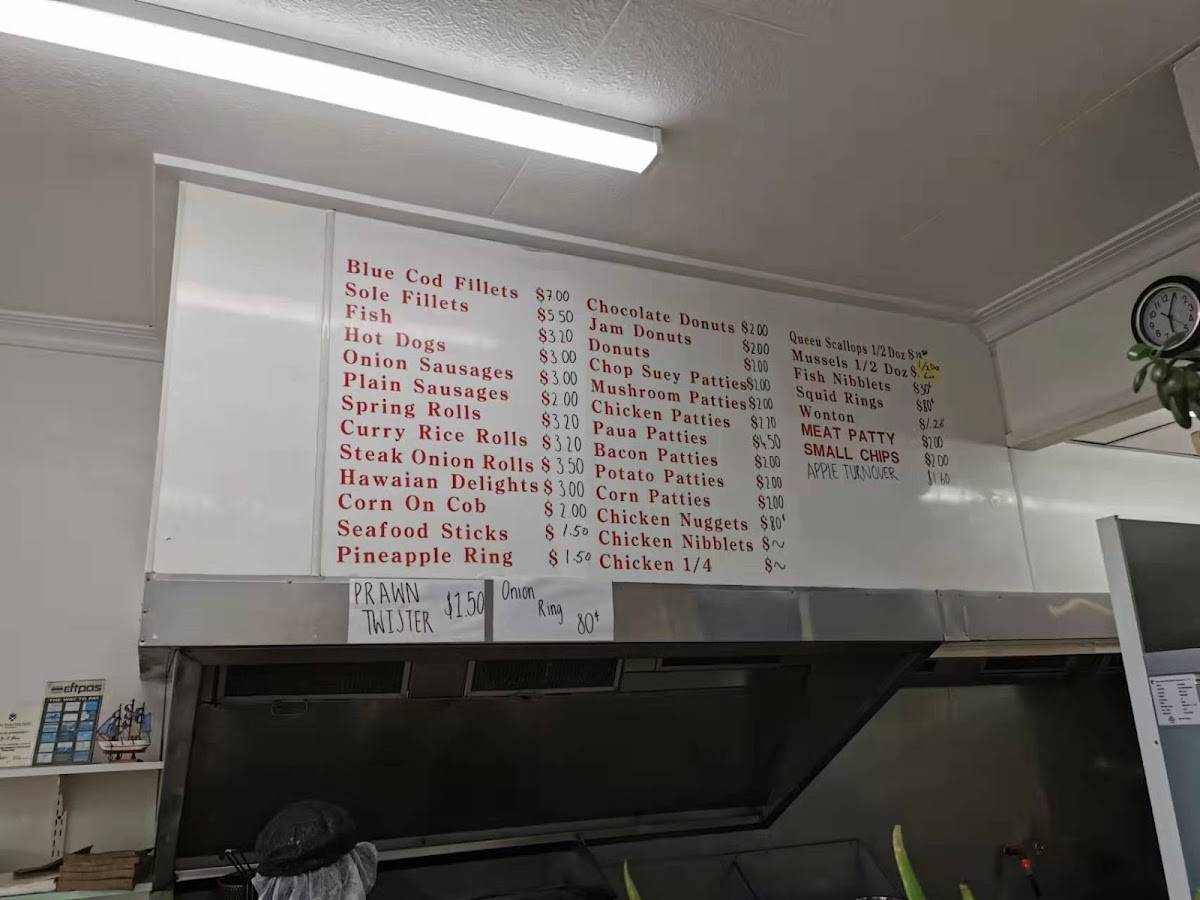 Blue Cod Fillets $7.00
Sole Fillets $5.50
Fish $3.20
Hot Dogs $3.00
Onion Sausages $3.00
Plain Sausages $2.00
Spring Rolls $3.20
Curry Rice Rolls $3.20
Steak Onion Rolls $3.50
Hawaian Delights $3.00
Corn On Cob $2.00
Seafood Sticks $1.50
Pineapple Ring $1.50
Chocolate Donuts $2.00
Jam Donuts $2.00
Donuts
Chop Suey Patties $2.00
Mushroom Patties $2.00
Chicken Patties
Paua Patties $4.50
Bacon Patties $2.00
Potato Patties $2.00
Corn Patties $2.00
Chicken Nuggets $80¢
Chicken Nibblets $~
Chicken 1/4 $~
Queen Scallops 1/2 Doz
Mussels 1/2 Doz
Fish Nibblets
Squid Rings $80¢
Wonton $1.20
MEAT PATTY $2.00
SMALL CHIPS $2.00
APPLE TURNOVER $1.60
PRAWN TWISTER $1.50
Onion
Ring 80¢
eftpos